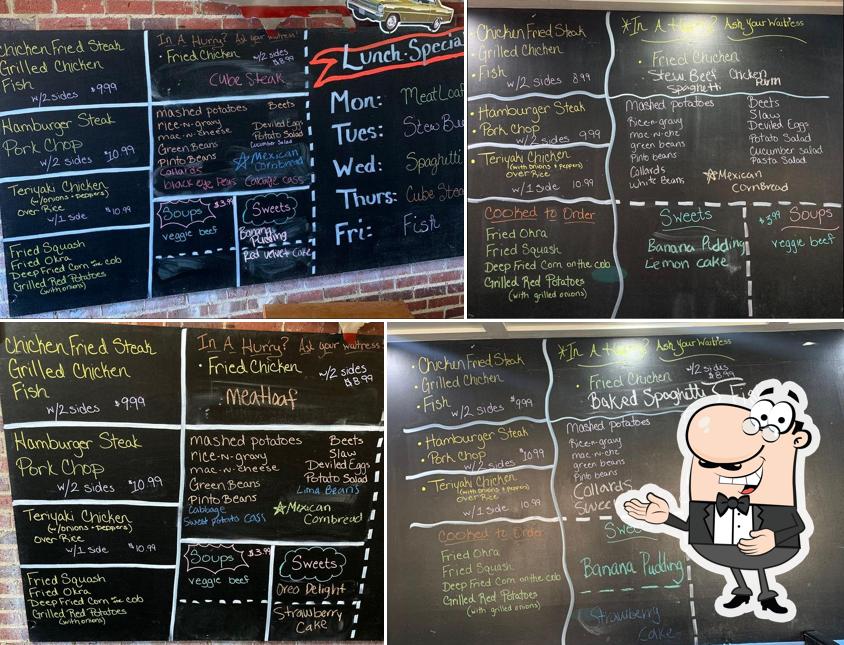 Chicken Fried Steak
Grilled Chicken
Fish
w/2 sides $9.99
Hamburger Steak
Pork Chop
w/2 sides $10.99
Teriyaki Chicken
(w/onions + peppers)
over Rice
w/1 side $10.99
Fried Squash
Fried Okra
Deep Fried Corn on the cob
Grilled Red Potatoes
(with onions)
In A Hurry? Ask your waitress!
• Fried Chicken w/2 sides
$8.99
Cube Steak
mashed potatoes
rice-n-gravy
mac-n-cheese
Green Beans
Pinto Beans
Collards
black eye Peas
Beets
Deviled Eggs
Potato Salad
Cucumber Salad
Mexican
Cornbread
Cass
Soups $3.99
veggie beef
Sweets
Banana
Pudding
Red Velvet Cake
Lunch Specia
Mon: MeatLoaf
Tues: Stew Be
Wed: Spaghetti
Thurs: Cube Stea
Fri: Fish
• Chicken Fried Steak
• Grilled Chicken
• Fish
w/2 sides 8.99
• Hamburger Steak
• Pork Chop
w/2 sides 9.99
• Teriyaki Chicken
(with onions + peppers)
over Rice
w/1 side 10.99
Cooked to Order
Fried Okra
Fried Squash
Deep Fried Corn on the cob
Grilled Red Potatoes
(with grilled onions)
*In A Hurry? Ask Your Waitress
• Fried Chicken
Stew Beef Chicken Parm
Spaghetti
Mashed potatoes
Rice-n-gravy
mac-n-chz
green beans
Pinto beans
Collards
White Beans
Beets
Slaw
Deviled Eggs
Potato Salad
Cucumber Salad
Pasta Salad
Mexican
Cornbread
Sweets
Banana Pudding
Lemon cake
$3.99 Soups
veggie beef
Chicken Fried Steak
Grilled Chicken
Fish
w/2 sides $9.99
Hamburger Steak
Pork Chop
w/2 sides $10.99
Teriyaki Chicken
(w/onions + peppers)
over Rice
w/1 side $10.99
Fried Squash
Fried Okra
Deep Fried Corn on the cob
Grilled Red Potatoes
(with onions)
In A Hurry? Ask your waitress
• Fried Chicken
w/2 sides
$8.99
meatloaf
mashed potatoes
rice-n-gravy
mac-n-cheese
Green Beans
Pinto Beans
Cabbage
Sweet potato cass
Beets
Slaw
Deviled Eggs
Potato Salad
Lima Beans
Mexican
Cornbread
Soups $3.99
veggie beef
Sweets
Oreo Delight
Strawberry
Cake
• Chicken Fried Steak
• Grilled Chicken
• Fish
w/2 sides $9.99
• Hamburger Steak
• Pork Chop
w/2 sides $10.99
• Teriyaki Chicken
(with onions + peppers)
over Rice
w/1 side 10.99
Cooked to Order
Fried Okra
Fried Squash
Deep Fried Corn on the cob
Grilled Red Potatoes
(with grilled onions)
*In A Hurry? Ask Your Waitress
• Fried Chicken
w/2 sides
$8.99
Baked Spaghetti
Mashed potatoes
Rice-n-gravy
mac-n-chz
green beans
Pinto beans
Collards
Swee
Swee
Banana Pudding
Strawberry
Cake